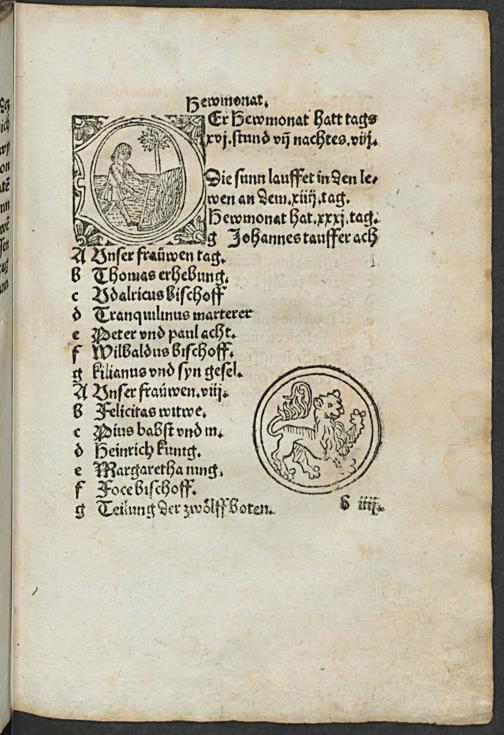 Hewmonat.
Er Hewmonat hatt tags
xvj. stund vnd nachtes. viij.
Die sunn lauffet in den le⸗
wen an dem. xiiij. tag.
Hewmonat hat. xxxj. tag.
g Johannes tauffer ach
A Vnser fraüwen tag.
b Thomas erhebung.
c Vdalricus bischoff
d Tranquilinus marterer
e Peter vnd paul acht.
f Wilbaldus bischoff.
g kilianus vnd syn gesel.
A Vnser fraüwen. viij.
b Felicitas witwe.
c Pius babst vnd m.
d Heinrich kunig.
e Margaretha iung.
f Foce bischoff.
g Teilung der zwölff boten.
b iiij.